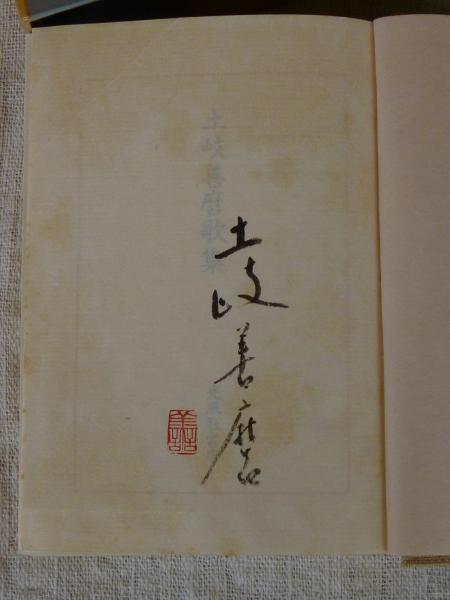 土岐善麿
土岐善麿歌集